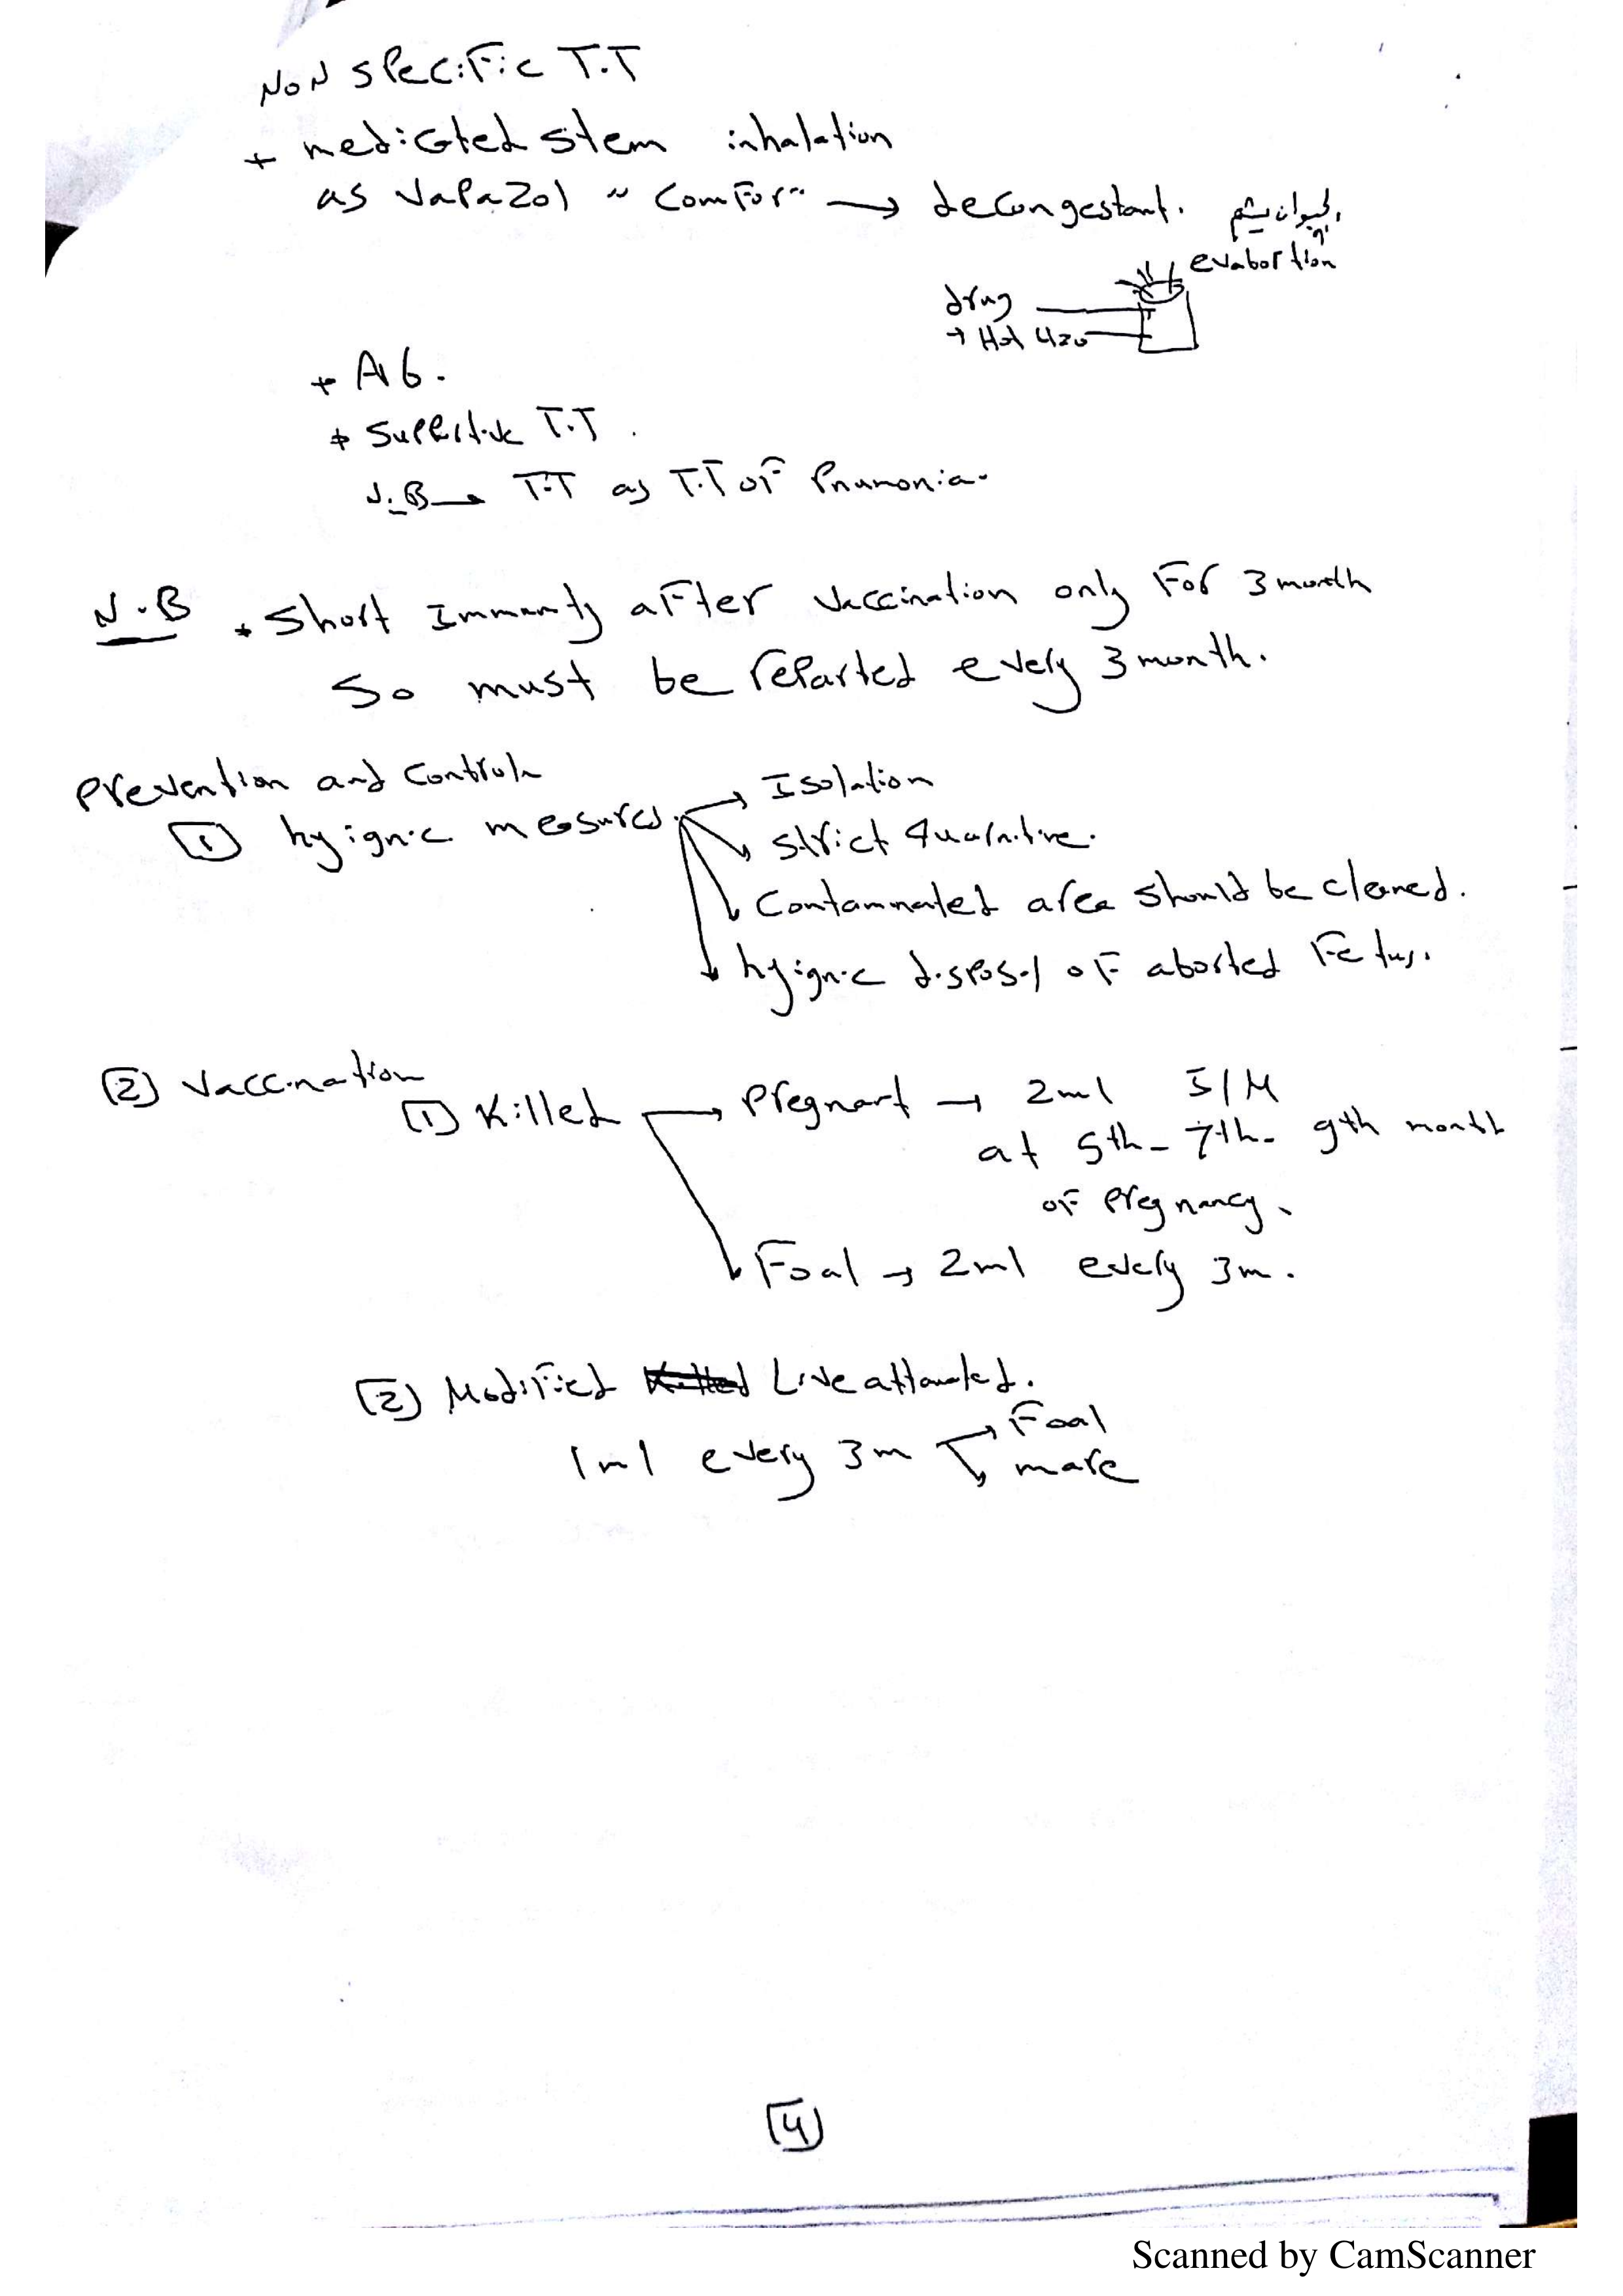 NoN SPeciFic T.T
+ medicated stem inhalation
as VaPaZol " ComFor" → decongestant. الحيوان يشم
evabortion
drug
→ Hot H2o
+ Ab.
* Suppritive T.T.
N.B → T.T as T.T oF Pnumonia.
N.B * Short Immunity aFter Vaccination only For 3 month
So must be reParted every 3 month.
Prevention and Control
(1) hyignic measures. → Isolation
Strict quarntine.
Contamnated area should be cleaned.
hyignic disposal oF aborted Fetus.
(2) Vaccination
(1) Killed → Pregnant → 2ml I/M
at 5th - 7th - 9th month
oF Pregnancy.
Foal → 2ml every 3m.
(2) ModiFied Killed Live attanuated.
1ml every 3m → Foal
mare
(4)
Scanned by CamScanner